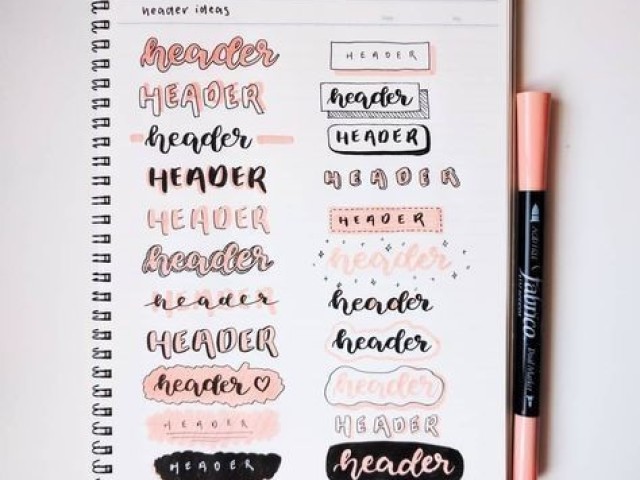 header ideas
header
HEADER
header
HEADER
HEADER
header
header
HEADER
header ♡
HEADER
HEADER
HEADER
header
HEADER
HEADER
HEADER
header
header
header
header
HEADER
header
Fabrico
Dual Marker